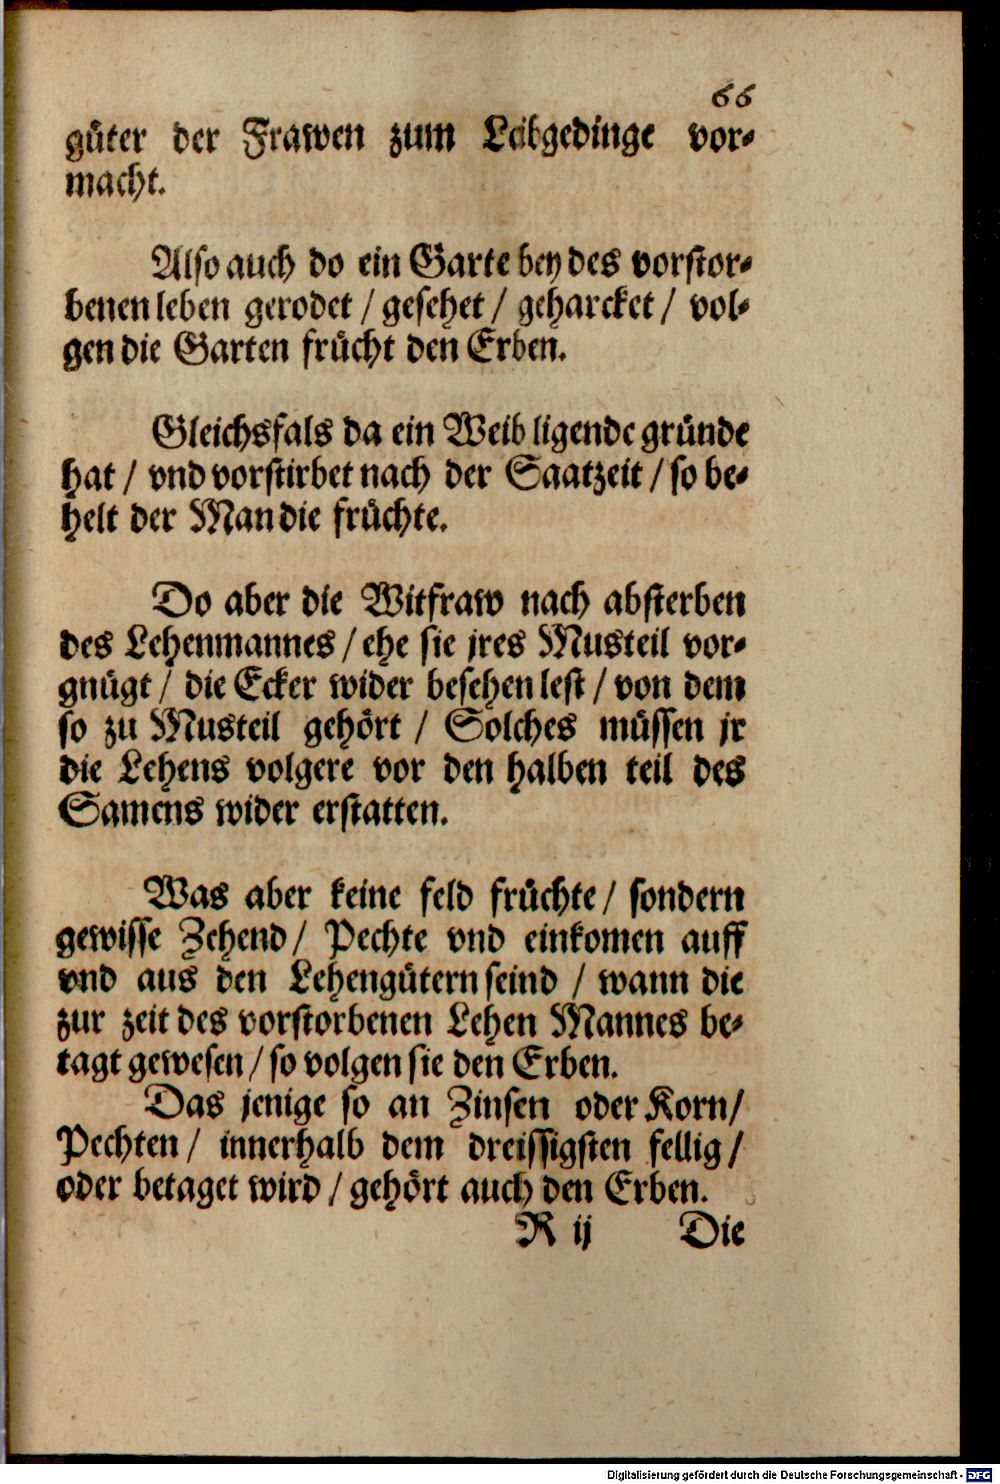 66
güter der Frawen zum Leibgedinge vor-
macht.
Also auch do ein Garte bey des vorstor-
benen leben gerodet / gesehet / geharcket / vol-
gen die Garten frücht den Erben.
Gleichsfals da ein Weib ligende gründe
hat / vnd vorstirbet nach der Saatzeit / so be-
helt der Man die früchte.
Do aber die Witfraw nach absterben
des Lehenmannes / ehe sie jres Musteil vor-
gnügt / die Ecker wider besehen lest / von dem
so zu Musteil gehört / Solches müssen jr
die Lehens volgere vor den halben teil des
Samens wider erstatten.
Was aber keine feld früchte / sondern
gewisse Zehend / Pechte vnd einkomen auff
vnd aus den Lehengütern seind / wann die
zur zeit des vorstorbenen Lehen Mannes be-
tagt gewesen / so volgen sie den Erben.
Das jenige so an Zinsen oder Korn /
Pechten / innerhalb dem dreissigsten fellig /
oder betaget wird / gehört auch den Erben.
R ij Die
Digitalisierung gefördert durch die Deutsche Forschungsgemeinschaft - DFG